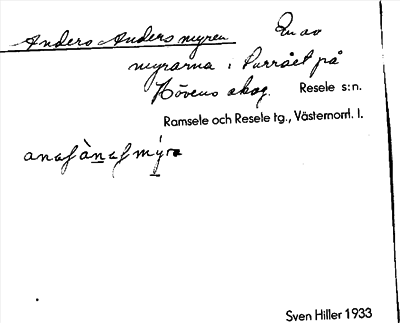 Anders-Andersmyren En av
myrarna i Purrået på
Hövens skog. Resele s:n.
Ramsele och Resele tg., Västernorrl. l.
Sven Hiller 1933